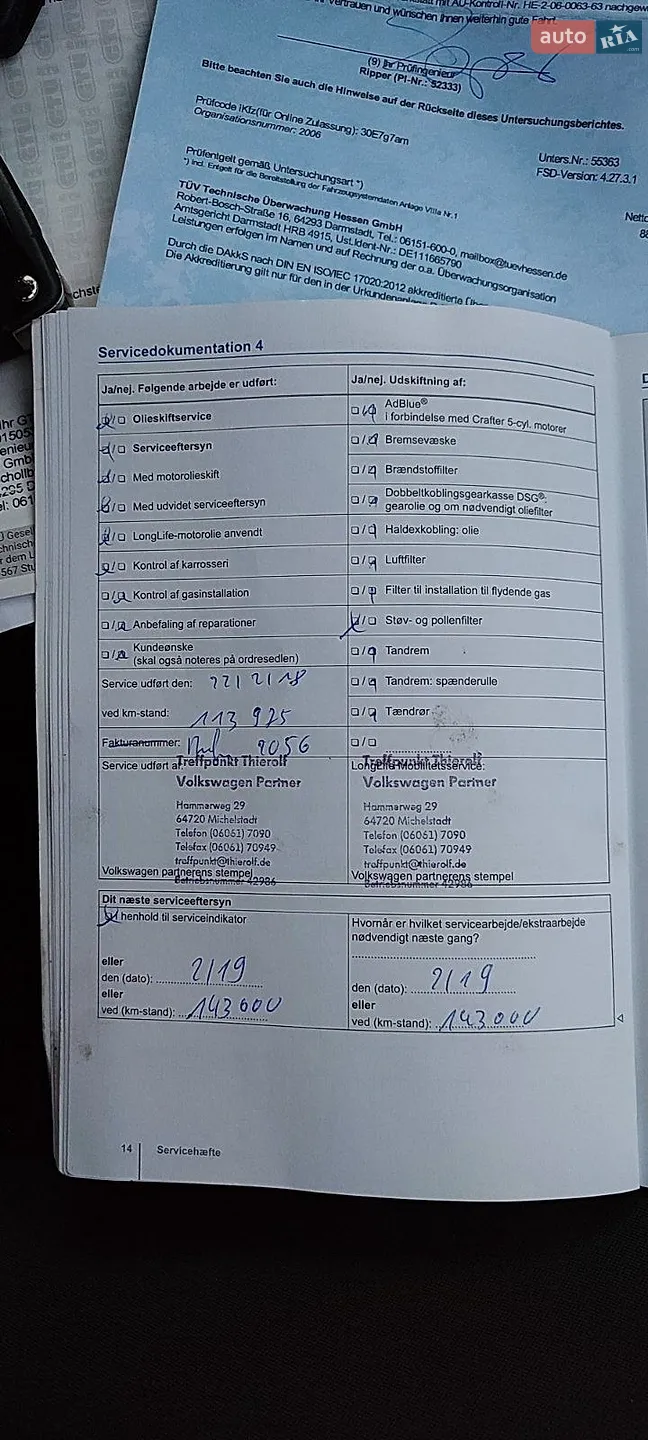 mit AU-Kontroll-Nr. HE-2-06-0063-63
Vertrauen und wünschen Ihnen weiterhin gute Fahrt.
auto RIA
.com
(9) Ihr Prüfingenieur
Ripper (PI-Nr.: 52333)
Bitte beachten Sie auch die Hinweise auf der Rückseite dieses Untersuchungsberichtes.
Prüfcode iKfz(für Online Zulassung): 30E7g7am
Organisationsnummer: 2006
Unters.Nr.: 55363
FSD-Version: 4.27.3.1
Prüfentgelt gemäß Untersuchungsart *)
*) incl. Entgelt für die Bereitstellung der Fahrzeugsystemdaten Anlage VIIIa Nr.1
TÜV Technische Überwachung Hessen GmbH
Robert-Bosch-Straße 16, 64293 Darmstadt, Tel.: 06151-600-0, mailbox@tuevhessen.de
Amtsgericht Darmstadt HRB 4915, Ust.Ident-Nr.: DE111665790
Leistungen erfolgen im Namen und auf Rechnung der o.a. Überwachungsorganisation
Durch die DAkkS nach DIN EN ISO/IEC 17020:2012 akkreditierte
Die Akkreditierung gilt nur für den in der
Servicedokumentation 4
Ja/nej. Følgende arbejde er udført:
Olieskiftservice
Serviceeftersyn
Med motorolieskift
Med udvidet serviceeftersyn
LongLife-motorolie anvendt
Kontrol af karrosseri
Kontrol af gasinstallation
Anbefaling af reparationer
Kundeønske
(skal også noteres på ordresedlen)
Service udført den: 22/2/18
ved km-stand: 113 925
Fakturanummer: 2056
Service udført af:
Treffpunkt Thierolf
Volkswagen Partner
Hammerweg 29
64720 Michelstadt
Telefon (06061) 7090
Telefax (06061) 70949
treffpunkt@thierolf.de
Betriebsnummer 42986
Volkswagen partnerens stempel
Ja/nej. Udskiftning af:
AdBlue®
i forbindelse med Crafter 5-cyl. motorer
Bremsevæske
Brændstoffilter
Dobbeltkoblingsgearkasse DSG®:
gearolie og om nødvendigt oliefilter
Haldexkobling: olie
Luftfilter
Filter til installation til flydende gas
Støv- og pollenfilter
Tandrem
Tandrem: spænderulle
Tændrør
LongLife Mobilitetsservice:
Treffpunkt Thierolf
Volkswagen Partner
Hammerweg 29
64720 Michelstadt
Telefon (06061) 7090
Telefax (06061) 70949
treffpunkt@thierolf.de
Betriebsnummer 42986
Volkswagen partnerens stempel
Dit næste serviceeftersyn
I henhold til serviceindikator
eller
den (dato): 2/19
eller
ved (km-stand): 143 000
Hvornår er hvilket servicearbejde/ekstraarbejde
nødvendigt næste gang?
den (dato): 2/19
eller
ved (km-stand): 143 000
14 Servicehæfte